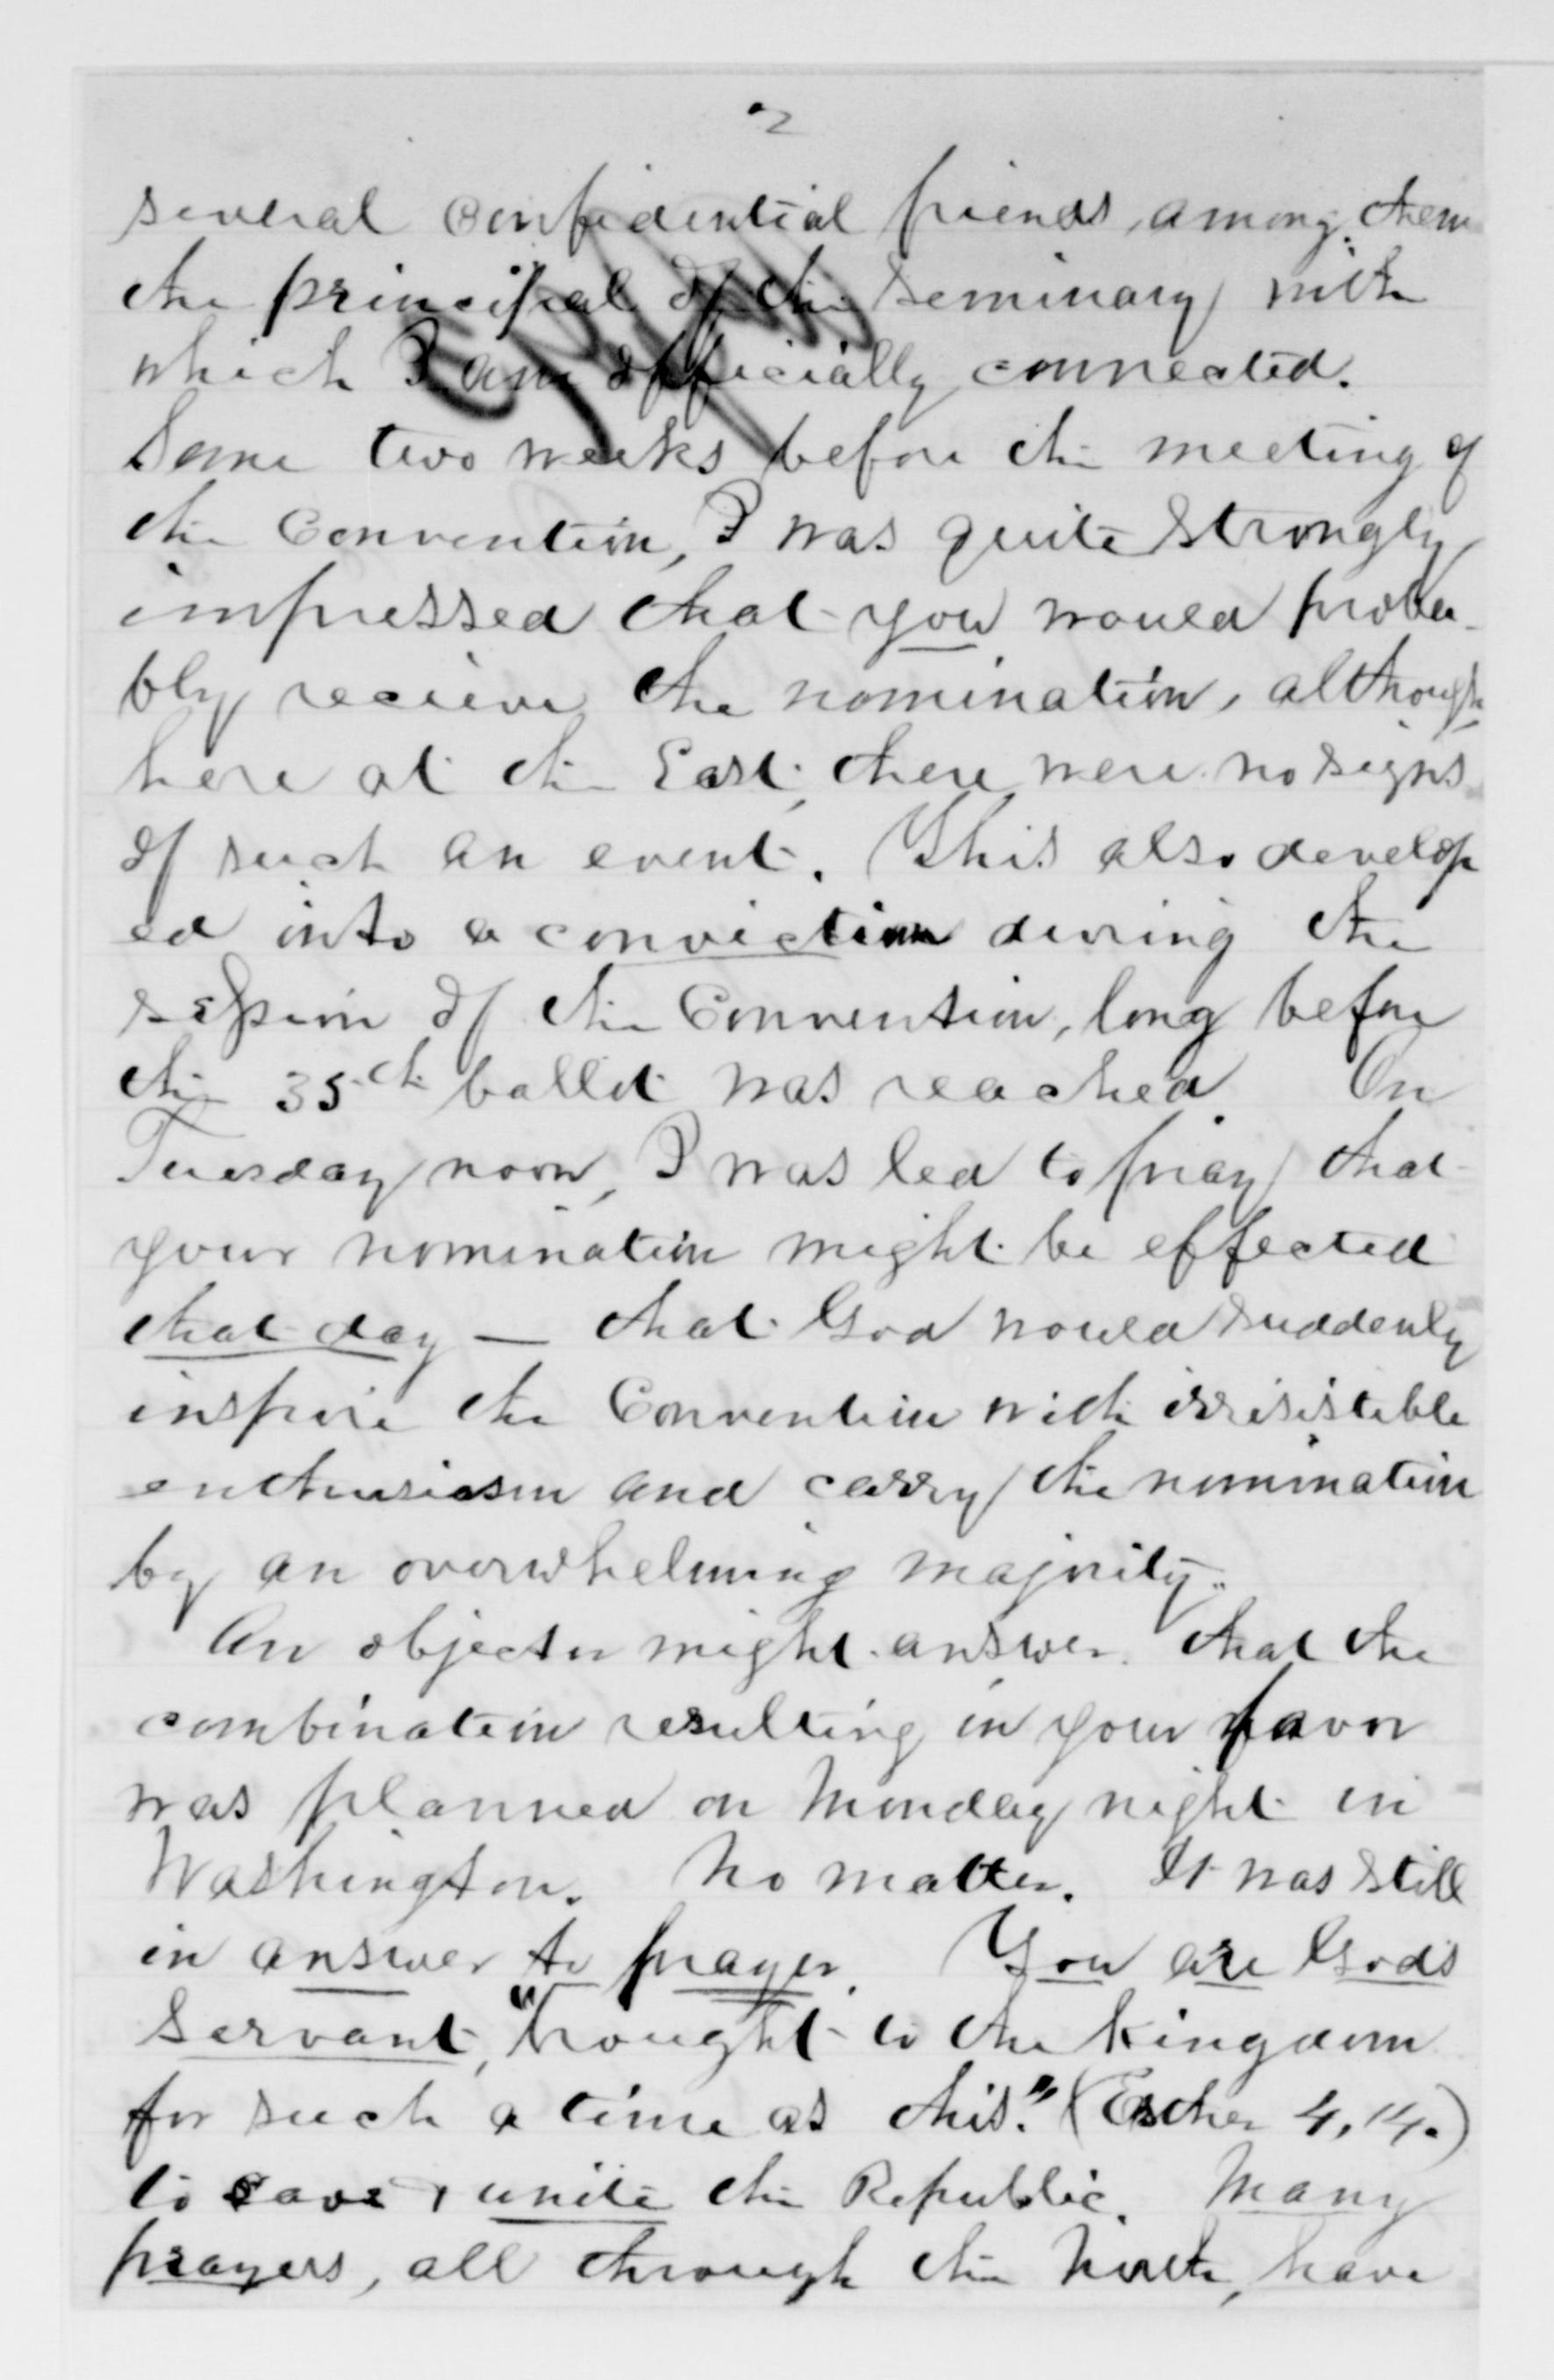 2
several confidential friends, among them
the principal of the Seminary with
which I am officially connected.
Some two weeks before the meeting of
the Convention, I was quite strongly
impressed that you would proba-
bly recieve the nomination, although
here at the East, there were no signs
of such an event. This also develop
ed into a conviction during the
session of the Convention, long before
the 35th ballot was reached. On
Tuesday noon, I was led to pray that
your nomination might be effected
that day — that God would suddenly
inspire the Convention with irrisistible
enthusiasm and carry the nomination
by an overwhelming majority.
An objector might answer that the
combination resulting in your favor
was planned on Monday night in
Washington. No matter. It was still
in answer to prayer. You are God's
Servant, "brought to the kingdom
for such a time as this." (Esther 4, 14.)
to save & unite the Republic. Many
prayers, all through the North, have